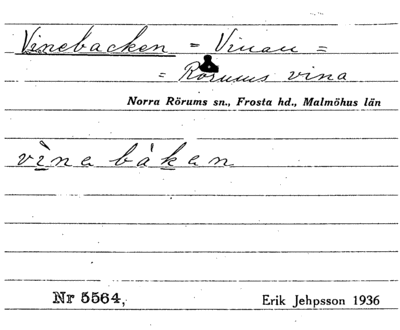 Vinebacken = Vinan =
= Rörums vina
Norra Rörums sn., Frosta hd., Malmöhus län
vìnabákan
Nr 5564,
Erik Jehpsson 1936